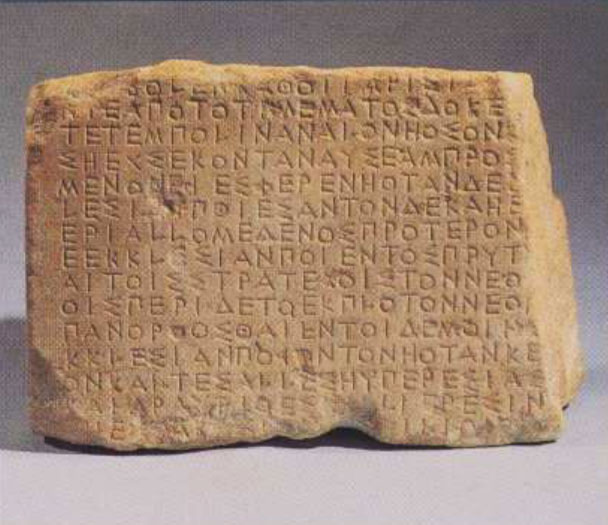 ΕΑΠΟΤΟΤΙΜΕΜΑΤΟΣΔΟΚΕ
ΤΕΤΕΜΠΟΛΙΝΑΝΑΛΟΝΗΟΣΟΝ
ΣΗΕΧΣΕΚΟΝΤΑΝΑΥΣΕΑΜΠΡΟ
ΜΕΝΟΝΕΙΕΣΦΕΡΕΝΗΟΤΑΝΔΕ
ΛΕΣΙΑΜΠΟΙΕΣΑΝΤΟΝΔΕΚΑΗΕ
ΕΡΙΑΛΛΟΜΕΔΕΝΟΣΠΡΟΤΕΡΟΝ
ΕΕΚΚΛΕΣΙΑΝΠΟΙΕΝΤΟΣΠΡΥΤ
ΑΙΤΟΙΣΣΤΡΑΤΕΛΟΙΣΤΟΝΝΕΟ
ΟΙΣΠΕΡΙΔΕΤΟΕΚΠΛΟΤΟΝΝΕΟ
ΠΑΝΟΡΘΟΣΘΑΙΕΝΤΟΙΔΕΜΟΙ
ΚΚΛΕΣΙΑΝΠΟΙΟΝΤΟΝΗΟΤΑΝΚΕ
ΟΝΚΑΙΤΕΣΑΛΛΕΣΗΥΠΕΡΕΣΙΑΣ